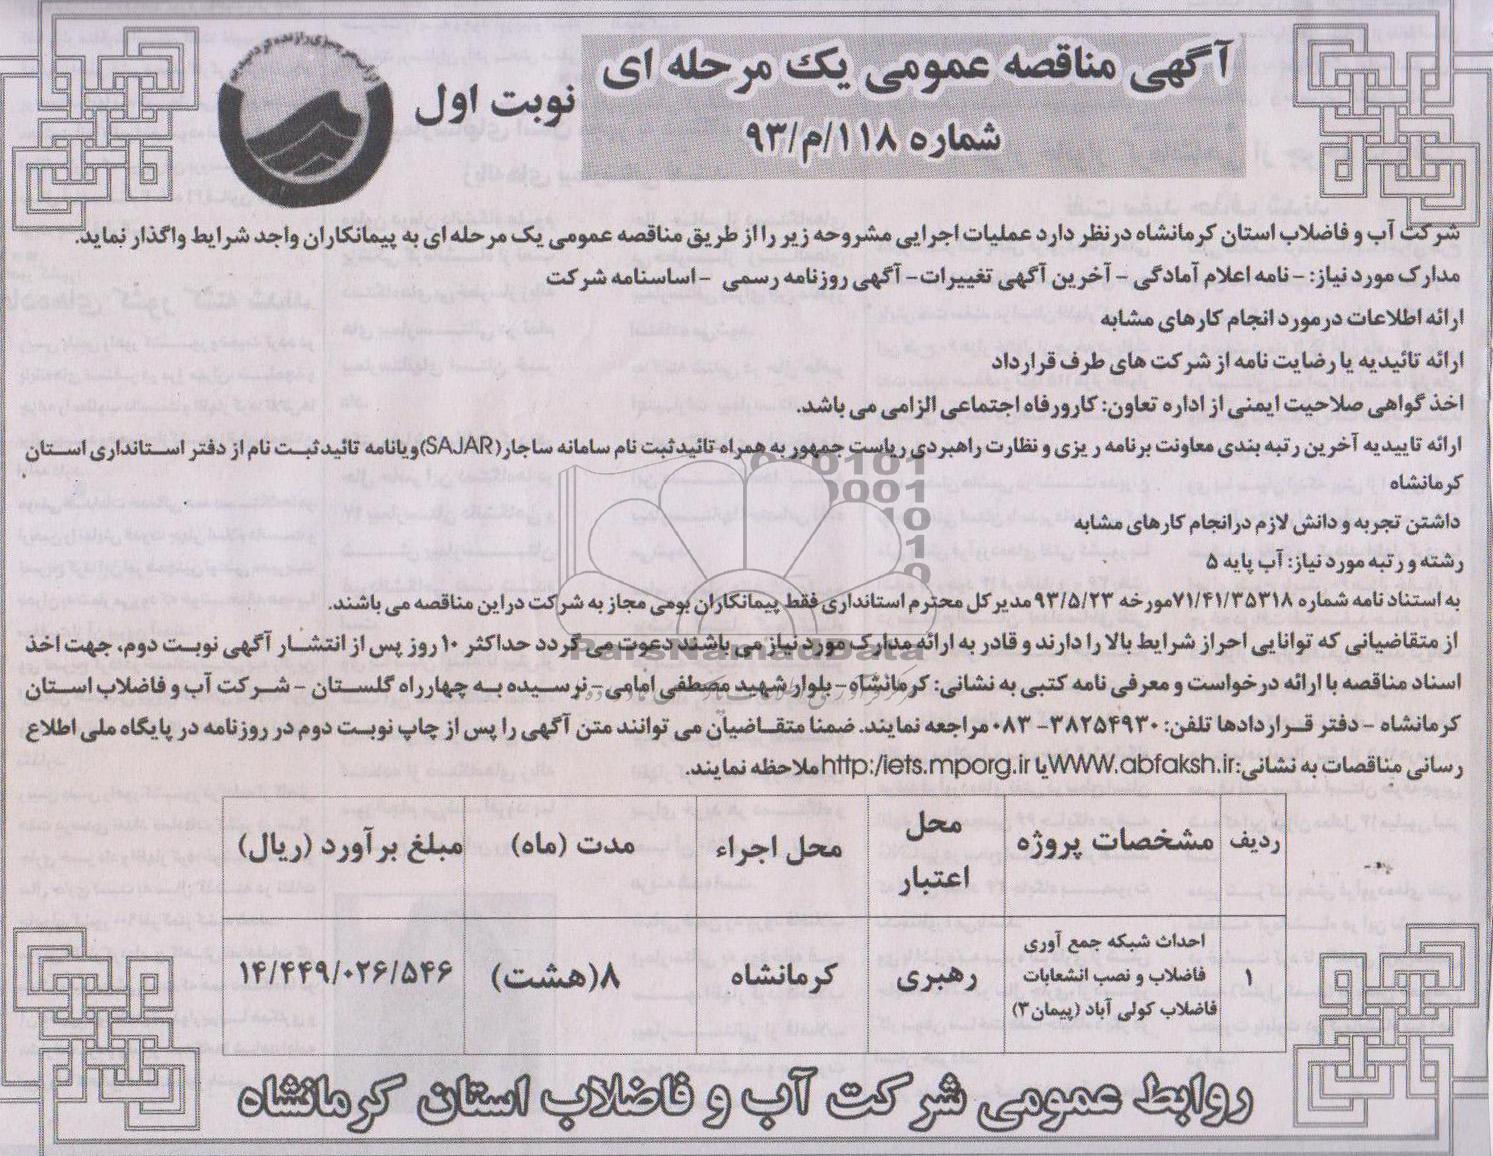 آگهی مناقصه عمومی یک مرحله ای
شماره ۱۱۸/م/۹۳
نوبت اول
شرکت آب و فاضلاب استان کرمانشاه درنظر دارد عملیات اجرایی مشروحه زیر را از طریق مناقصه عمومی یک مرحله ای به پیمانکاران واجد شرایط واگذار نماید.
مدارک مورد نیاز: - نامه اعلام آمادگی - آخرین آگهی تغییرات- آگهی روزنامه رسمی - اساسنامه شرکت
ارائه اطلاعات درمورد انجام کارهای مشابه
ارائه تائیدیه یا رضایت نامه از شرکت های طرف قرارداد
اخذ گواهی صلاحیت ایمنی از اداره تعاون: کارورفاه اجتماعی الزامی می باشد.
ارائه تاییدیه آخرین رتبه بندی معاونت برنامه ریزی و نظارت راهبردی ریاست جمهور به همراه تائیدثبت نام سامانه ساجار(SAJAR)ویانامه تائیدثبت نام از دفتر استانداری استان
کرمانشاه
داشتن تجربه و دانش لازم درانجام کارهای مشابه
رشته و رتبه مورد نیاز: آب پایه ۵
به استناد نامه شماره ۷۱/۴۱/۳۵۳۱۸مورخه ۹۳/۵/۲۳مدیر کل محترم استانداری فقط پیمانکاران بومی مجاز به شرکت دراین مناقصه می باشند.
از متقاضیانی که توانایی احراز شرایط بالا را دارند و قادر به ارائه مدارک مورد نیاز می باشند دعوت می گردد حداکثر ۱۰ روز پس از انتشار آگهی نوبت دوم، جهت اخذ
اسناد مناقصه با ارائه درخواست و معرفی نامه کتبی به نشانی: کرمانشاه- بلوار شهید مصطفی امامی- نرسیده به چهارراه گلستان - شرکت آب و فاضلاب استان
کرمانشاه - دفتر قراردادها تلفن: ۳۸۲۵۴۹۳۰-۰۸۳ مراجعه نمایند. ضمنا متقاضیان می توانند متن آگهی را پس از چاپ نوبت دوم در روزنامه در پایگاه ملی اطلاع
رسانی مناقصات به نشانی:WWW.abfaksh.ir یا http:/iets.mporg.ir ملاحظه نمایند.
ردیف مشخصات پروژه محل اعتبار محل اجراء مدت (ماه) مبلغ برآورد (ریال)
۱ احداث شبکه جمع آوری فاضلاب و نصب انشعابات فاضلاب کولی آباد (پیمان۳) رهبری کرمانشاه ۸(هشت) ۱۴/۴۴۹/۰۲۶/۵۴۶
روابط عمومی شرکت آب و فاضلاب استان کرمانشاه
ParsNamadData